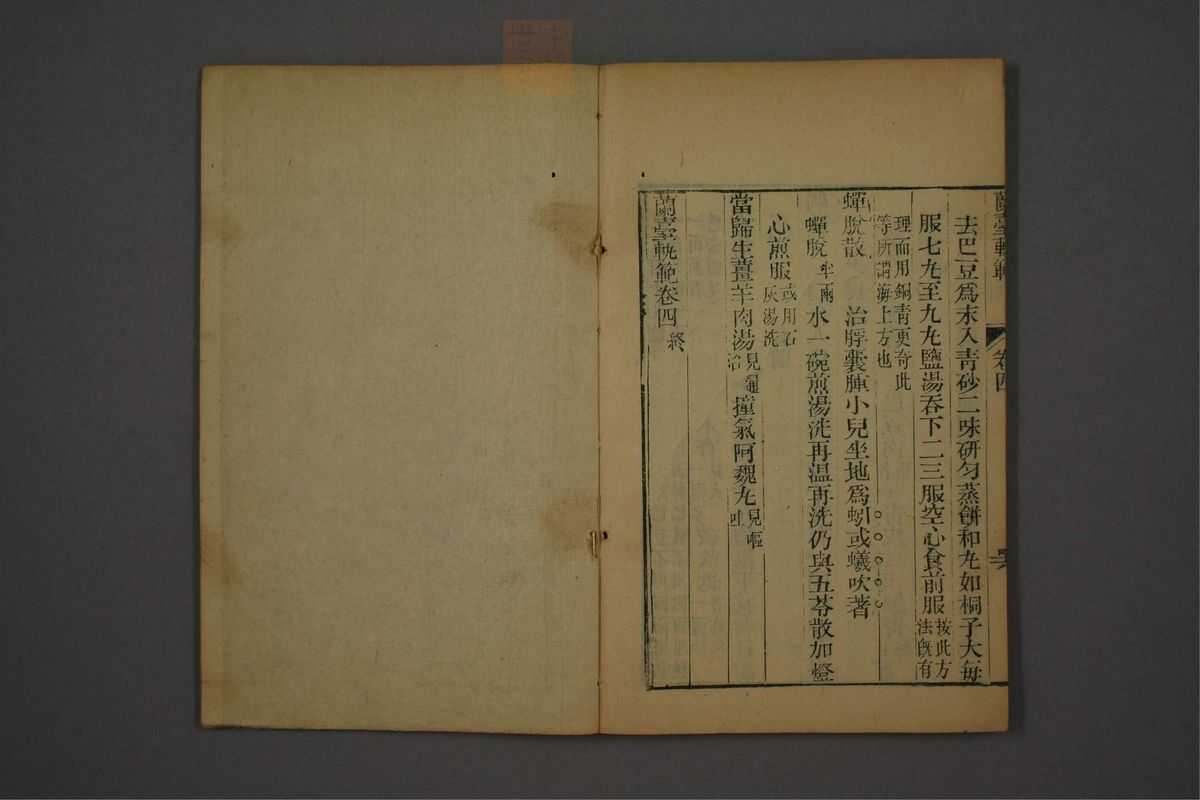 蘭臺軌範
卷四
去巴豆爲末入青砂二味研匀蒸餅和丸如桐子大每
服七丸至九丸鹽湯吞下二三服空心食前服按此方法旣有
理而用銅青更奇此等所謂海上方也
蟬脫散 治脬囊腫小兒坐地爲蚓或蟻吹著
蟬脫半兩水一碗煎湯洗再温再洗仍與五苓散加燈
心煎服或用石灰湯洗
當歸生薑羊肉湯見通治 撞氣阿魏丸見嘔吐
蘭臺軌範卷四終